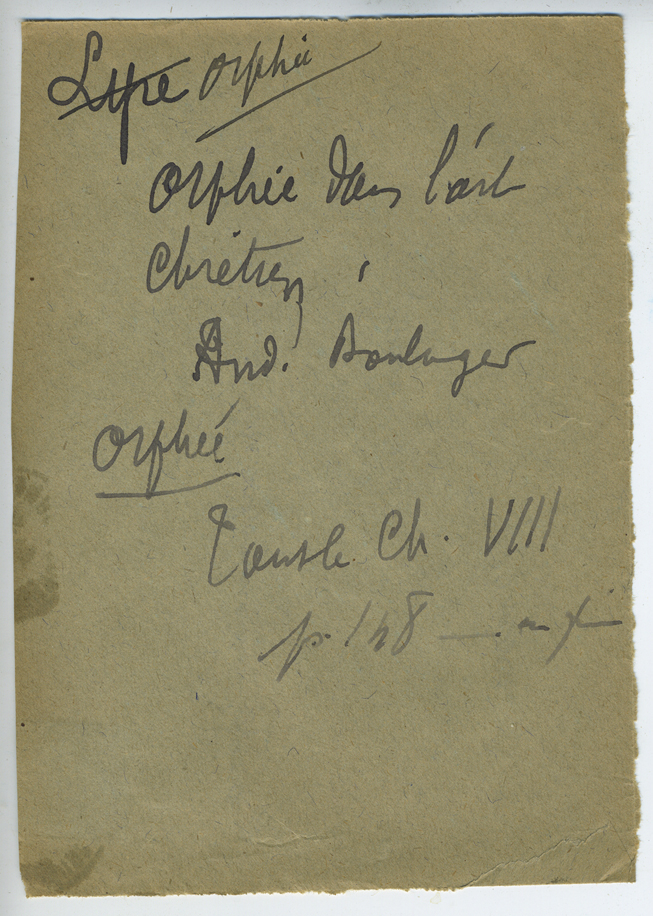 Lyre Orphée
Orphée dans l'art
Chrétien
And. Boulanger
Orphée
Tout le Ch. VIII
p. 148